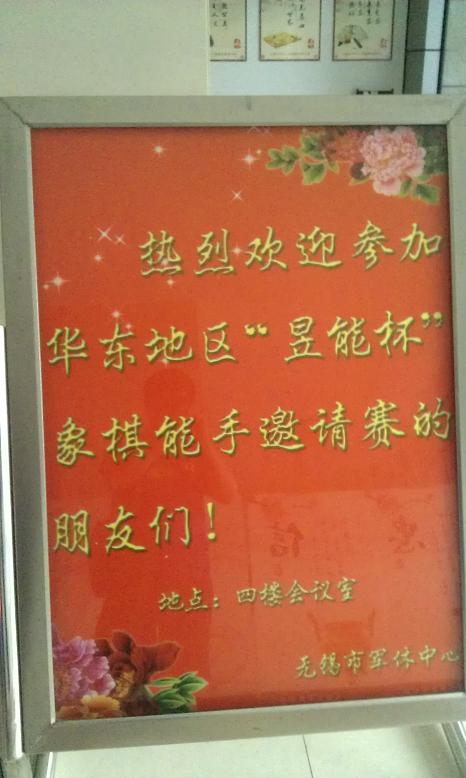 热烈欢迎参加
华东地区“昱能杯”
象棋能手邀请赛的
朋友们！
地点：四楼会议室
无锡市军休中心